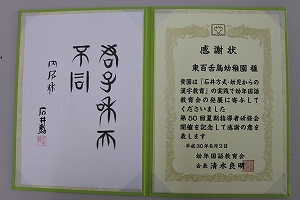 君子和而
不同
石井勲
感謝状
東百舌鳥幼稚園 様
貴園は「石井方式・幼児からの
漢字教育」の実践で幼年国語
教育会の発展に寄与して
くださいました
第50回夏期指導者研修会
開催を記念して感謝の意を表
します
平成30年8月2日
幼年国語教育会
会長 清水良明